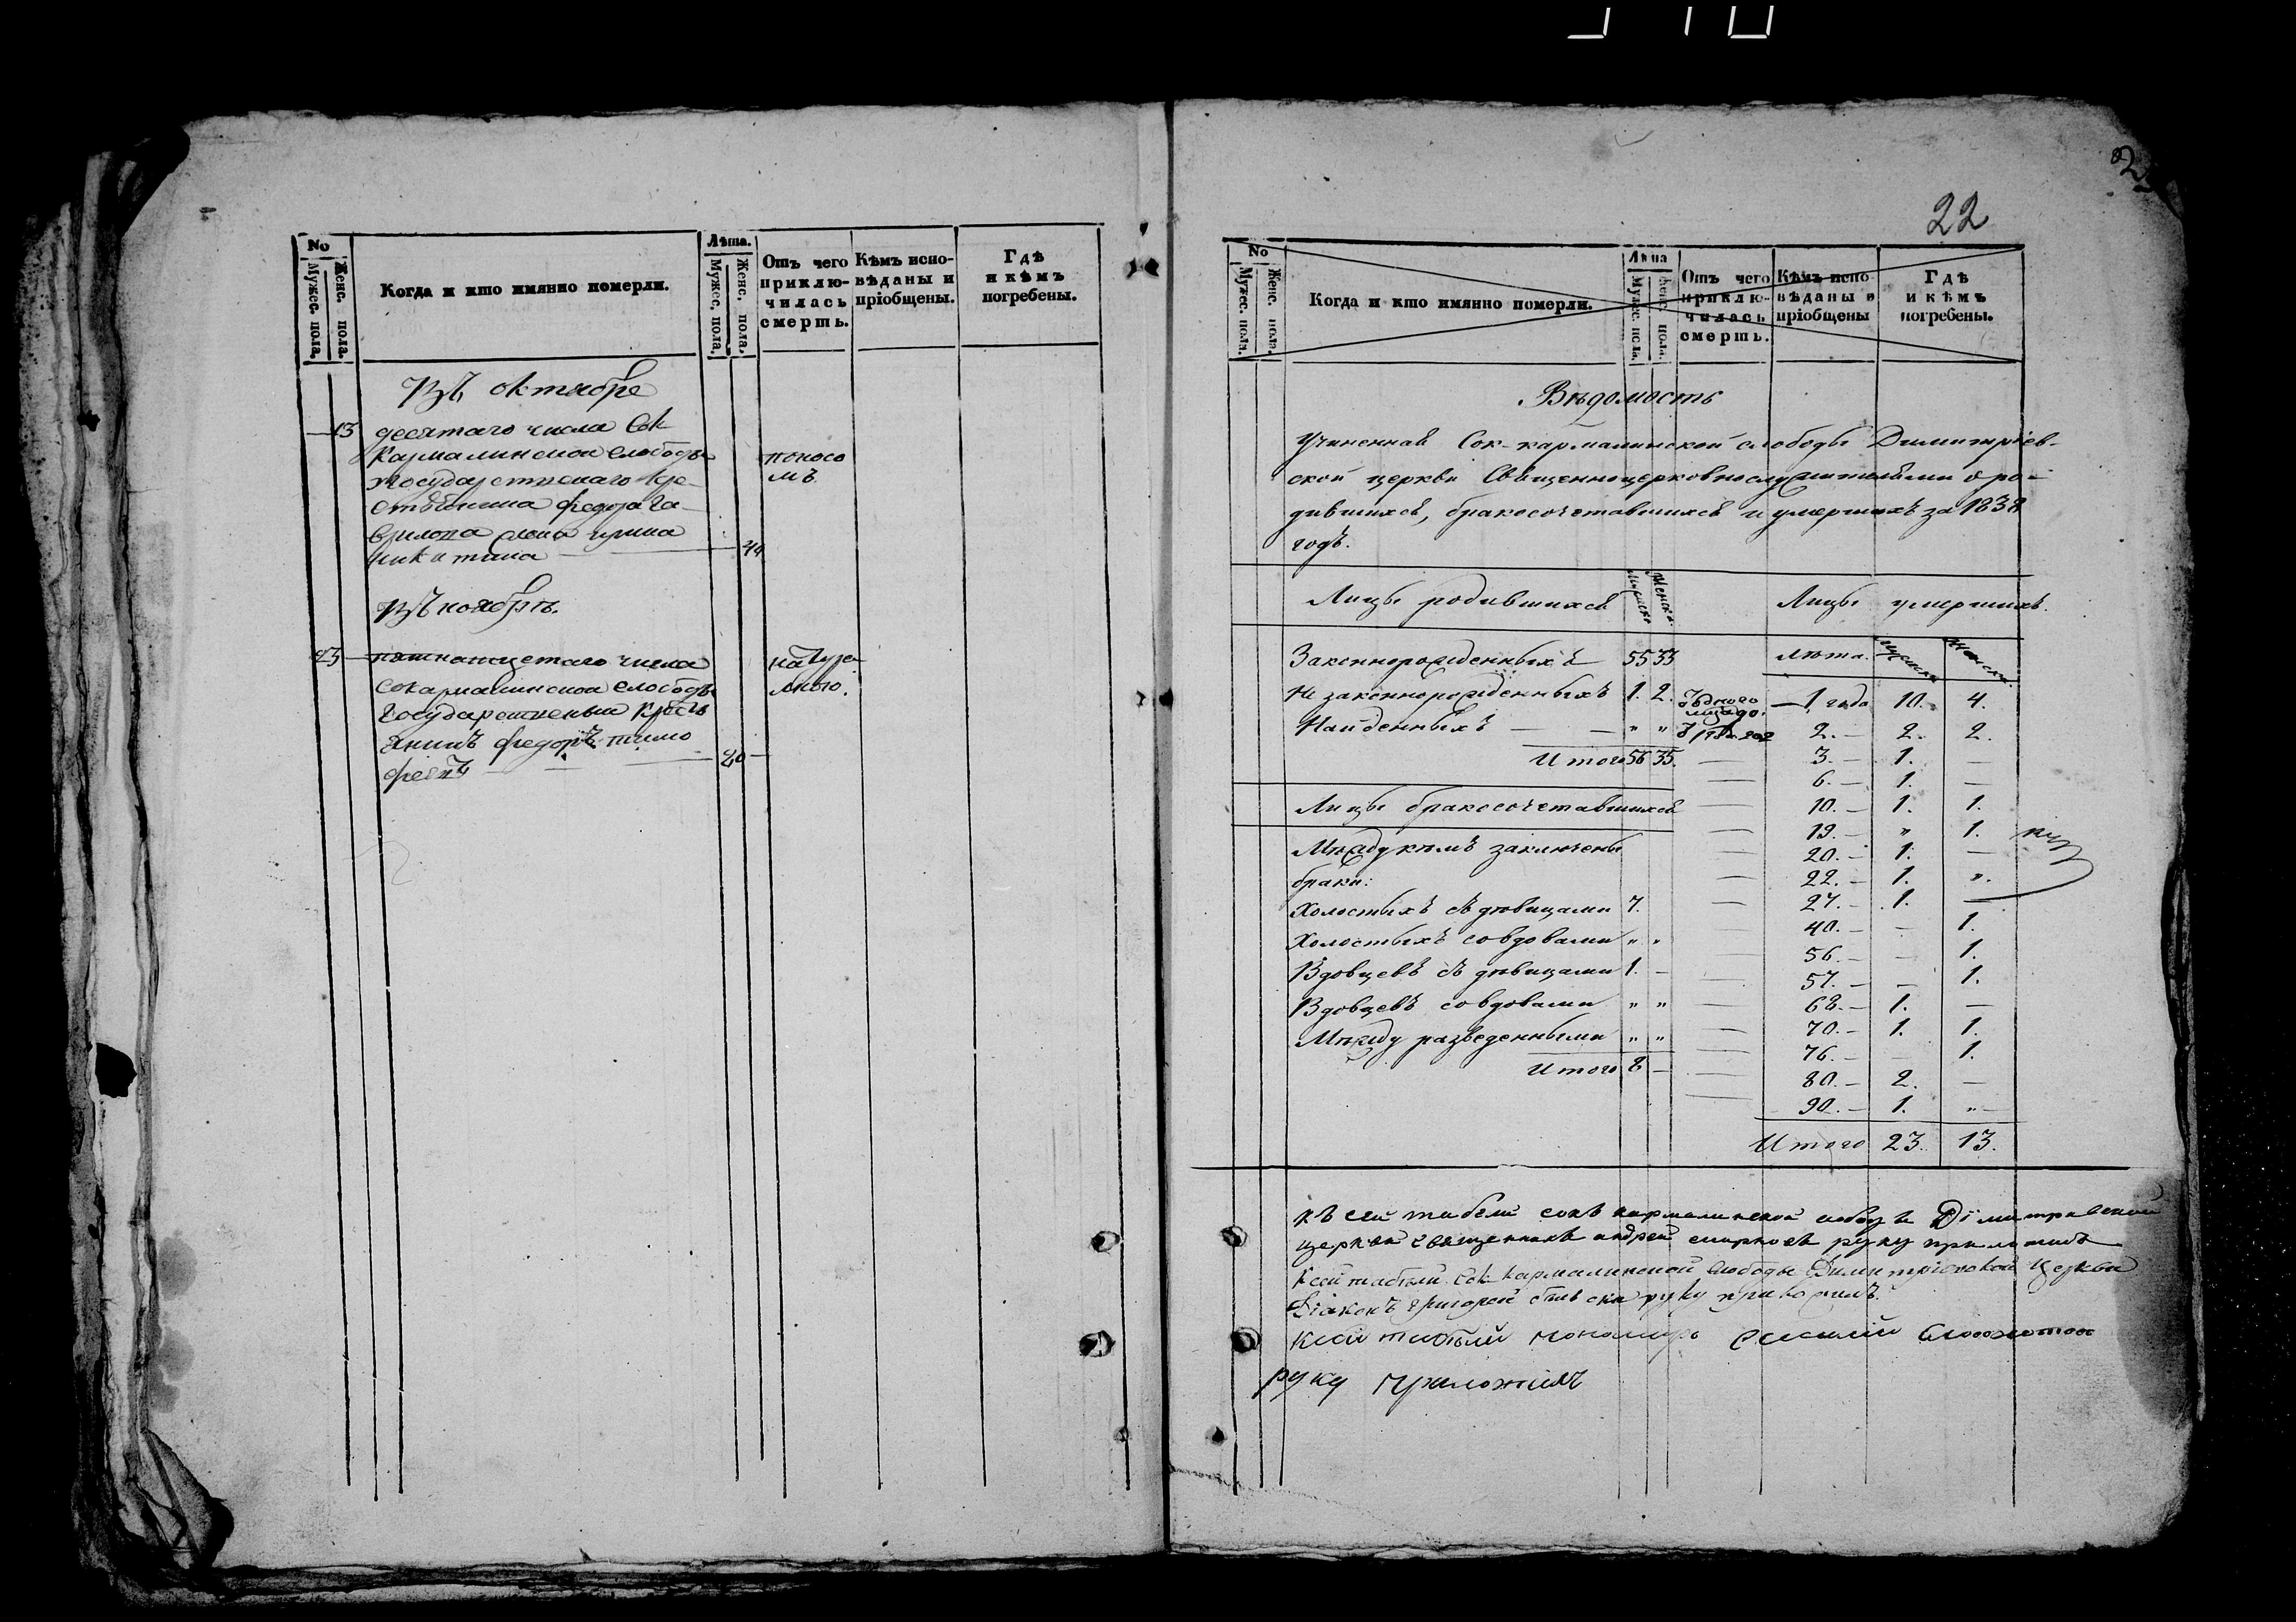 No
Мужес. пола.
Женс. пола.
Когда и кто имянно померли.
Лѣта.
Мужес. пола.
Женс. пола.
Отъ чего приклю-
чилась смерть.
Кѣмъ испо-
вѣданы и
пріобщены.
Гдѣ
и кѣмъ
погребены.
Въ октябре
— 13 десятаго числа Сок
Кармалинской слободы
государственаго кре-
стьянина федора Га-
врилова жена ирина
никитина — 44
поносо
мъ
Въ ноябрѣ.
23 — пятнатцетаго числа
сокармалинской слободы
государственый кресть
янинъ федоръ тимо
феевъ — 20 —
натура
лною.
22
No
Мужес. пола.
Женс. пола.
Когда и кто имянно померли.
Лѣта
Мужес. пола.
Женс. пола.
Отъ чего
приклю-
чилась
смерть.
Кѣмъ испо
вѣданы и
пріобщены
Гдѣ
и кѣмъ
погребены.
Вѣдомость
Учиненная Сок-кармалинской слободы Димитріев-
ской церкви Священноцерковнослужителями о ро-
дившихся, бракосочетавшихся и умершихъ за 1838
годъ.
Лицы родившихся
Мужеска
Женска.
Лицы умершихъ.
Законнорожденныхъ 55 33
Не законнорожденныхъ 1. 2.
Найденныхъ — — " "
Итого 56 35.
Лицы бракосочетавшихся
Мѣжду кемъ заключены
браки:
Холостыхъ съ дѣвицами 7.
Холостыхъ совдовами " "
Вдовцевъ съ дѣвицами 1. —
Вдовцевъ совдовами " "
Мѣжду разведенными " "
Итого 8 —
лѣта.
— 1 года 10. 4.
2. — 2. 2.
— 3. — 1. —
6. — 1. —
— 10. — 1. 1.
— 19. — " 1.
20. — 1. —
— 22. — 1. ".
— 27. — 1. —
40. — — 1.
— 56. — — 1.
57. — — 1.
— 68. — 1. —
— 70. — 1. 1.
— 76. — — 1.
— 80. — 2. —
— 90. — 1. " —
Итого 23. 13.
къ сей табели сокъ кармалинской слободы Диметриевской
церкви священникъ андрей смирновъ руку приложилъ
ксей табели Сок кармалинской слободы Димитріевской Церкви
Діаконъ Григорей руку приложилъ.
ксей табели пономарь
руку приложилъ